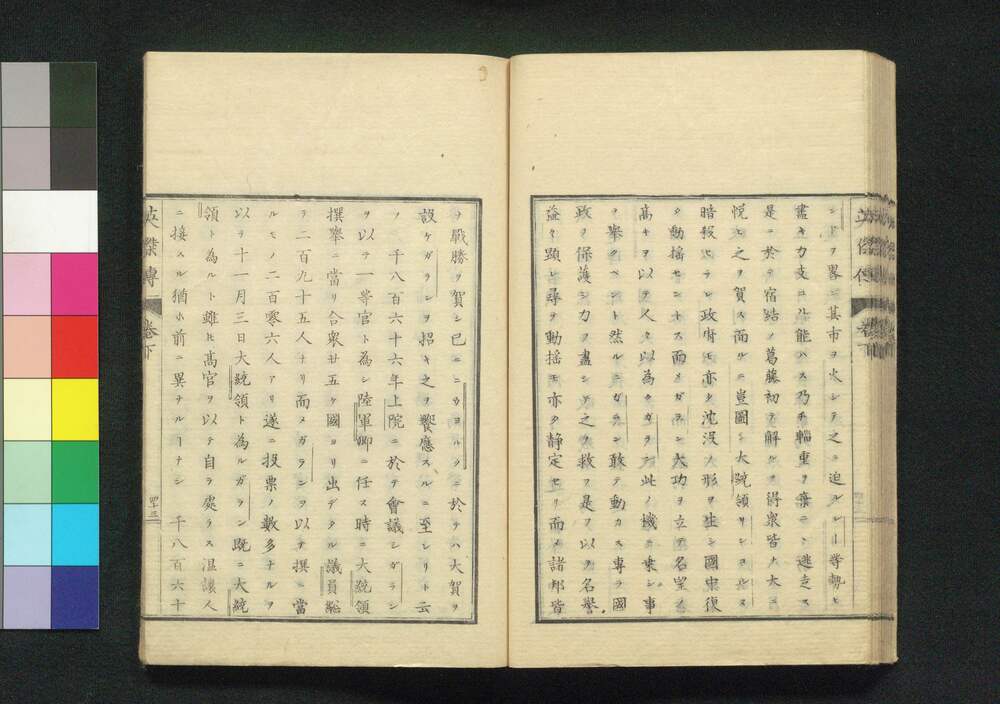 ントヲ畧ニ其市ヲ火シテ之ニ迫ル ルー等勢ヒ
盡キ力支ユル能ハス乃チ輜重ヲ棄テヽ逃走ス
是ニ於テ宿結ノ葛藤初テ解ルヲ得衆皆ナ大ニ
悦ヒ之ヲ賀ス而ルニ豈圖ンヤ大統領リンコルヽス
暗報セラレ政府モ亦タ沈没ノ形ヲ生シ國中復
タ動揺セントス而メガランド大功ヲ立テ名望ノ
高キヲ以テ人々以為クガラン此ノ機ニ乗シ事
ヲ舉クベシト然ルニガラン敢テ動カス専ラ國
政ヲ保護シ力ヲ盡シテ之ヲ救フ是ヲ以テ名譽
益々顕レ尋テ動揺モ亦タ静定セリ而メ諸邦皆
英傑傳 卷下
ヲ戰勝ヲ賀シ已ニニウヨルクニ於テハ大賀ヲ
設ケガランヲ招キ之ヲ饗應スルニ至レリト云
フ 千八百六十六年上院ニ於テ會議シガラン
ヲ以テ一等官ト為シ陸軍卿ニ任ス時ニ大統領
撰舉ニ當リ合衆廿五ケ國ヨリ出デタル議員総
テ二百九十五人ナリ而メガランヲ以テ撰ニ當
ルモノ二百零六人アリ遂ニ投票ノ數多ナルヲ
以テ十一月三日大統領ト為ルガラン既ニ大統
領ト為ルト雖モ髙官ヲ以テ自ラ處ラス温譲人
ニ接スル猶ホ前ニ異ナルーナシ 千八百六十
英傑傳 卷下 四十三